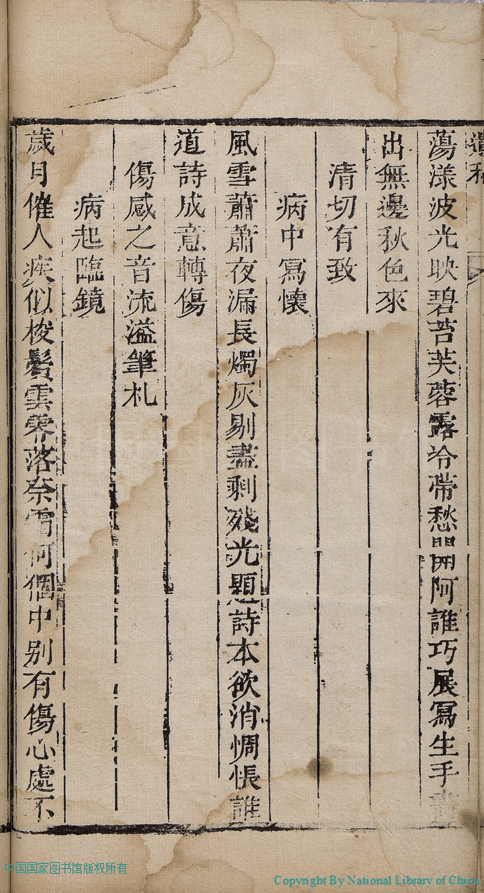 遺稿
蕩漾波光映碧苔芙蓉露冷帶愁開阿誰巧展寫生手畫
出無邊秋色來
清切有致
病中寫懷
風雪蕭蕭夜漏長燭灰剔盡剩殘光題詩本欲消惆悵誰
道詩成意轉傷
傷感之音流溢筆札
病起臨鏡
歲月催人疾似梭鬢雲零落奈何個中別有傷心處不
中国国家图书馆版权所有
Copyright By National Library of China